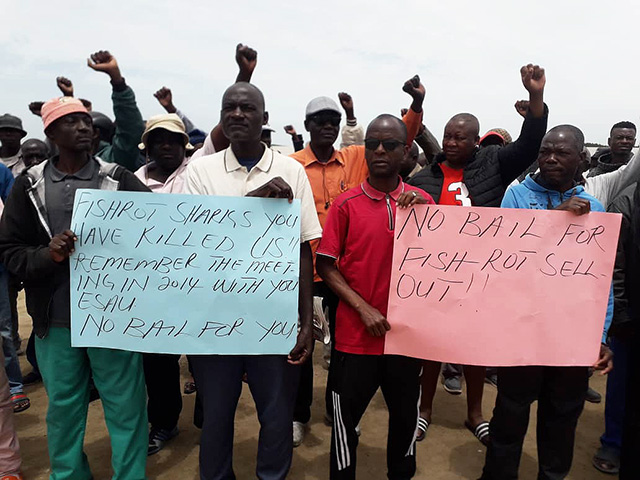 FISHROT SHARKS YOU
HAVE KILLED US!!
REMEMBER THE MEET-
ING IN 2014 WITH YOU
ESAU
NO BAIL FOR YOU
NO BAIL FOR
FISH ROT SELL
OUT!!
3